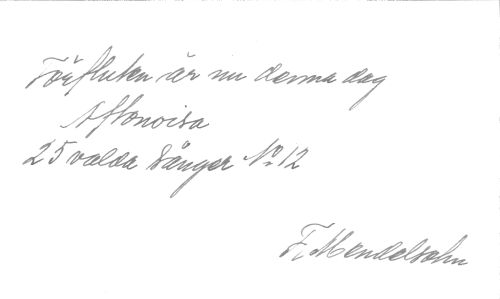 Förfluten är nu denna dag
Aftonvisa
25 valda Sånger No 12
F. Mendelsohn